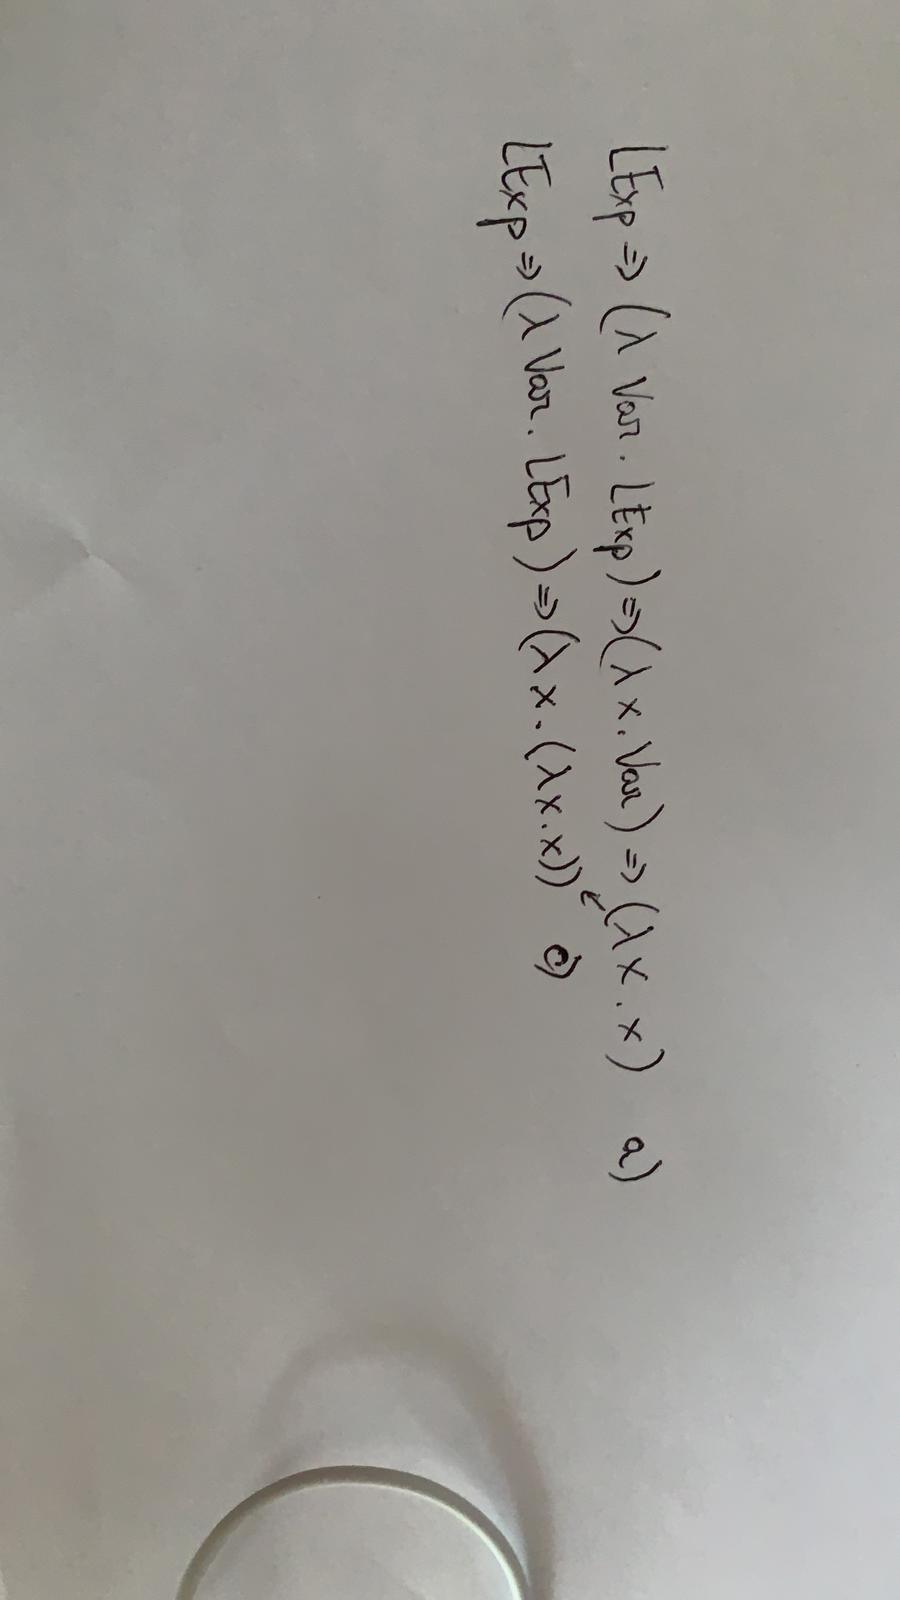 LExp ⇒ (λ Var. LExp) ⇒ (λ x. Var) ⇒ (λ x. x) a)
LExp ⇒ (λ Var. LExp) ⇒ (λ x. (λ x. x)) ↙ c)